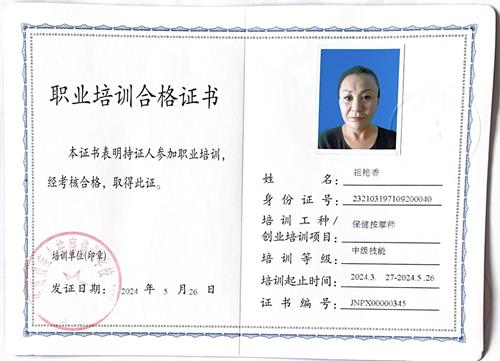 职业培训合格证书
本证书表明持证人参加职业培训，
经考核合格，取得此证。
培训单位(印章)
发证日期： 2024 年 5 月26 日
姓 名： 祖艳香
身 份 证 号： 232103197109200040
培 训 工 种/
创业培训项目： 保健按摩师
培 训 等 级： 中级技能
培训起止时间： 2024.3. 27-2024.5 .26
证 书 编 号： JNPX00000345